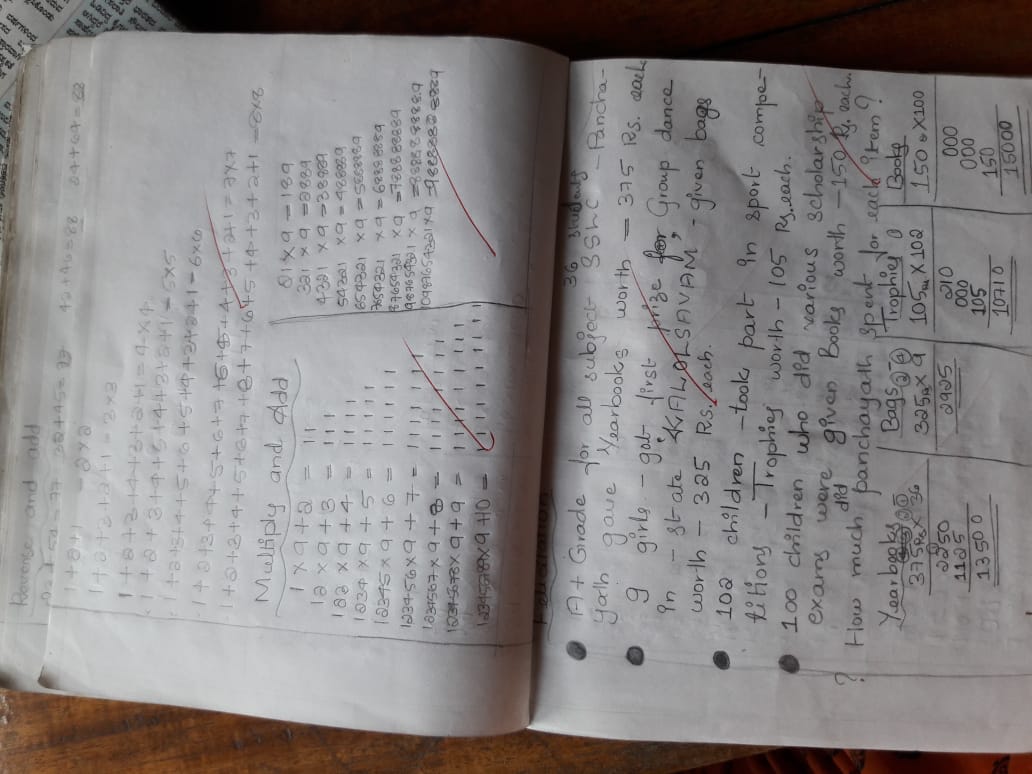 Reverse and add
32+45=77 42+46=88 24+64=88
1+2+1 = 2x2
1+2+3+2+1 = 3x3
1+2+3+4+3+2+1 = 4x4
1+2+3+4+5+4+3+2+1 = 5x5
1+2+3+4+5+6+5+4+3+2+1 = 6x6
1+2+3+4+5+6+7+6+5+4+3+2+1 = 7x7
1+2+3+4+5+6+7+8+7+6+5+4+3+2+1 = 8x8
Multiply and add
1 x 9 + 2 = 11
12 x 9 + 3 = 111
123 x 9 + 4 = 1111
1234 x 9 + 5 = 11111
12345 x 9 + 6 = 111111
123456 x 9 + 7 = 1111111
1234567 x 9 + 8 = 11111111
12345678 x 9 + 9 = 111111111
21 x 9 = 189
321 x 9 = 2889
4321 x 9 = 38889
54321 x 9 = 488889
654321 x 9 = 5888889
7654321 x 9 = 68888889
87654321 x 9 = 788888889
987654321 x 9 = 8888888889
A+ Grade for all subject 36 students
SSHC - Pancha-
yath gave Yearbooks worth = 375 Rs. each
9 girls - got first prize for Group dance
in - state KALOLSAVAM, - given bags
worth - 325 Rs. each.
102 children - took part in sport compe-
titions - Trophiy worth - 105 Rs. each.
100 children who did various scholarship
exams were given Books worth - 150 Rs. each.
did
? How much panchayath spent for each item?
Yearbooks
375 Rs x 36
2250
1125
13500
Bags
325 Rs x 9
2925
Trophiey
105 Rs x 102
210
000
105
10710
Books
150 x 100
000
000
150
15000